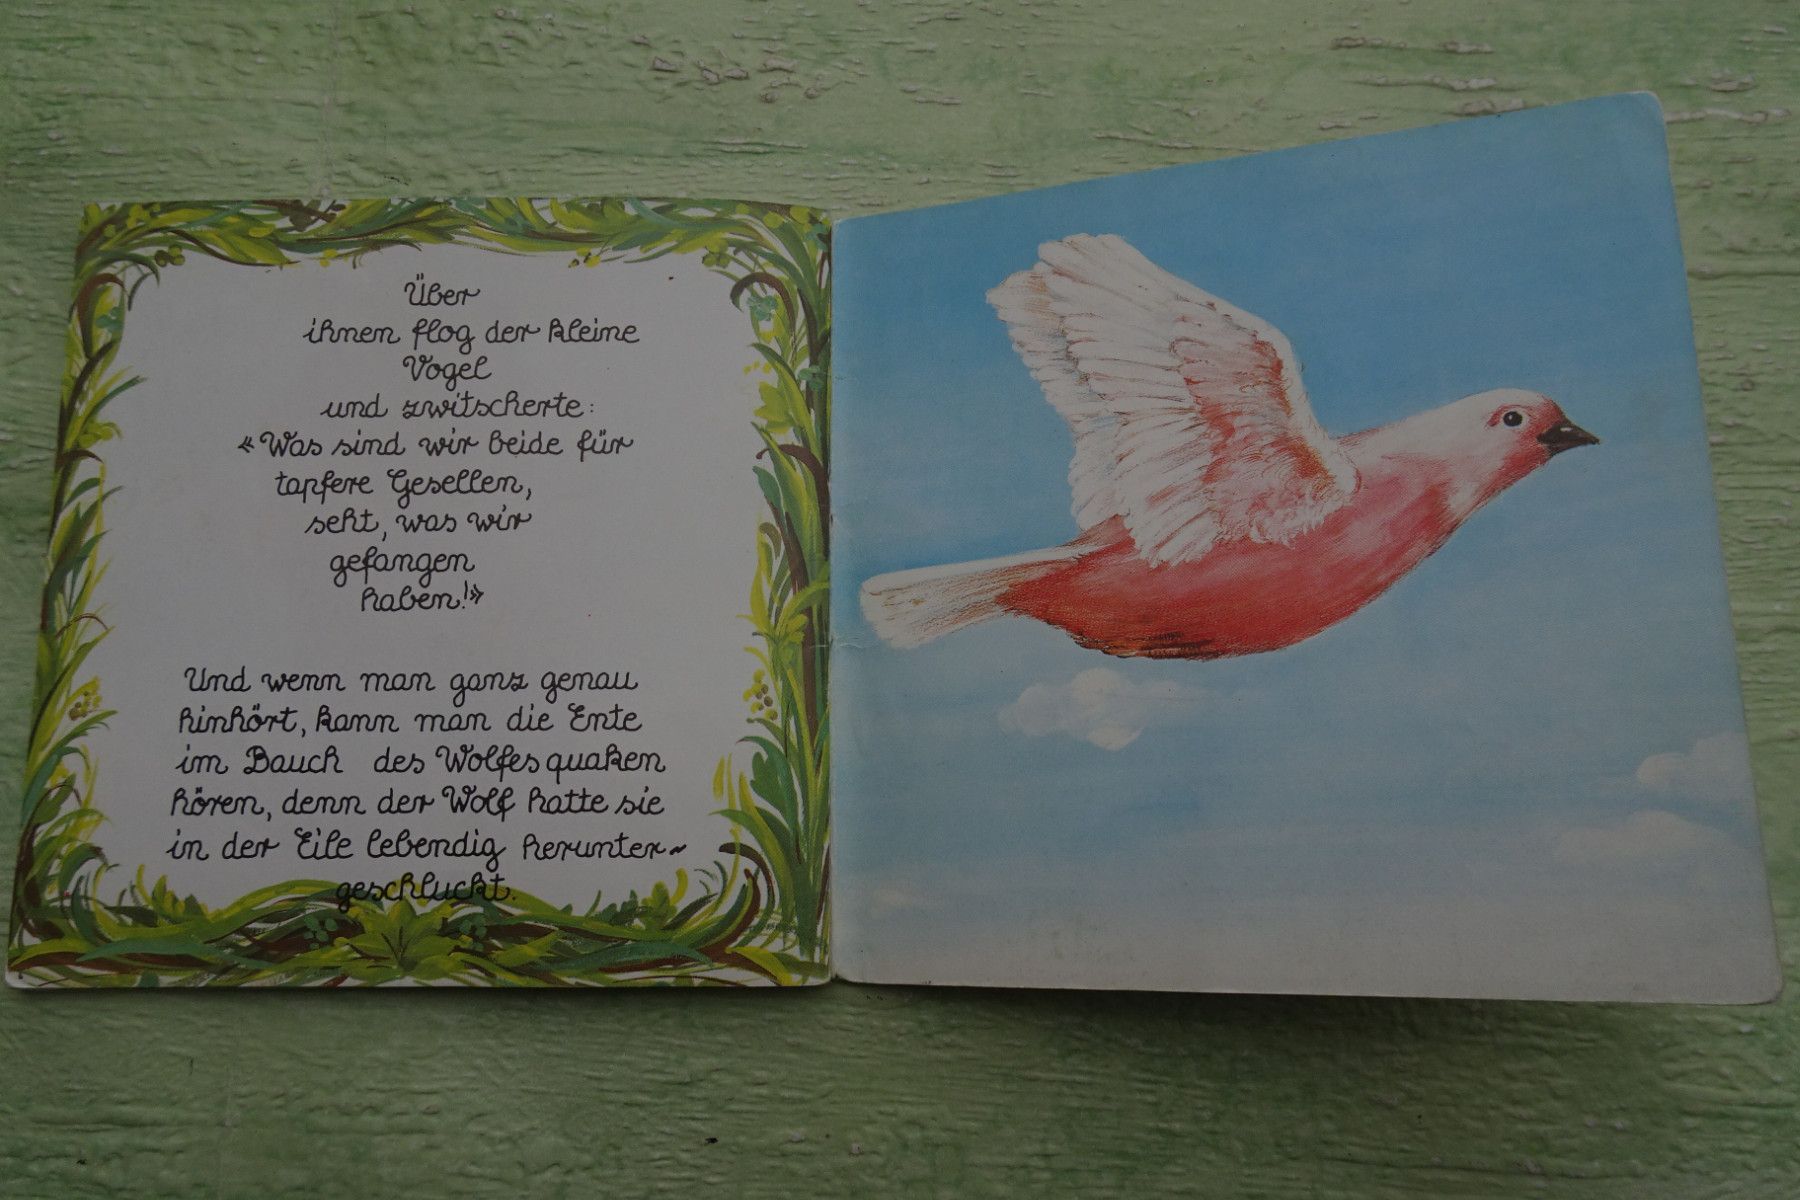 Über
ihnen flog der kleine
Vogel
und zwitscherte:
«Was sind wir beide für
tapfere Gesellen,
seht, was wir
gefangen
haben!»
Und wenn man ganz genau
hinhört, kann man die Ente
im Bauch des Wolfes quaken
hören, denn der Wolf hatte sie
in der Eile lebendig herunter~
geschluckt.